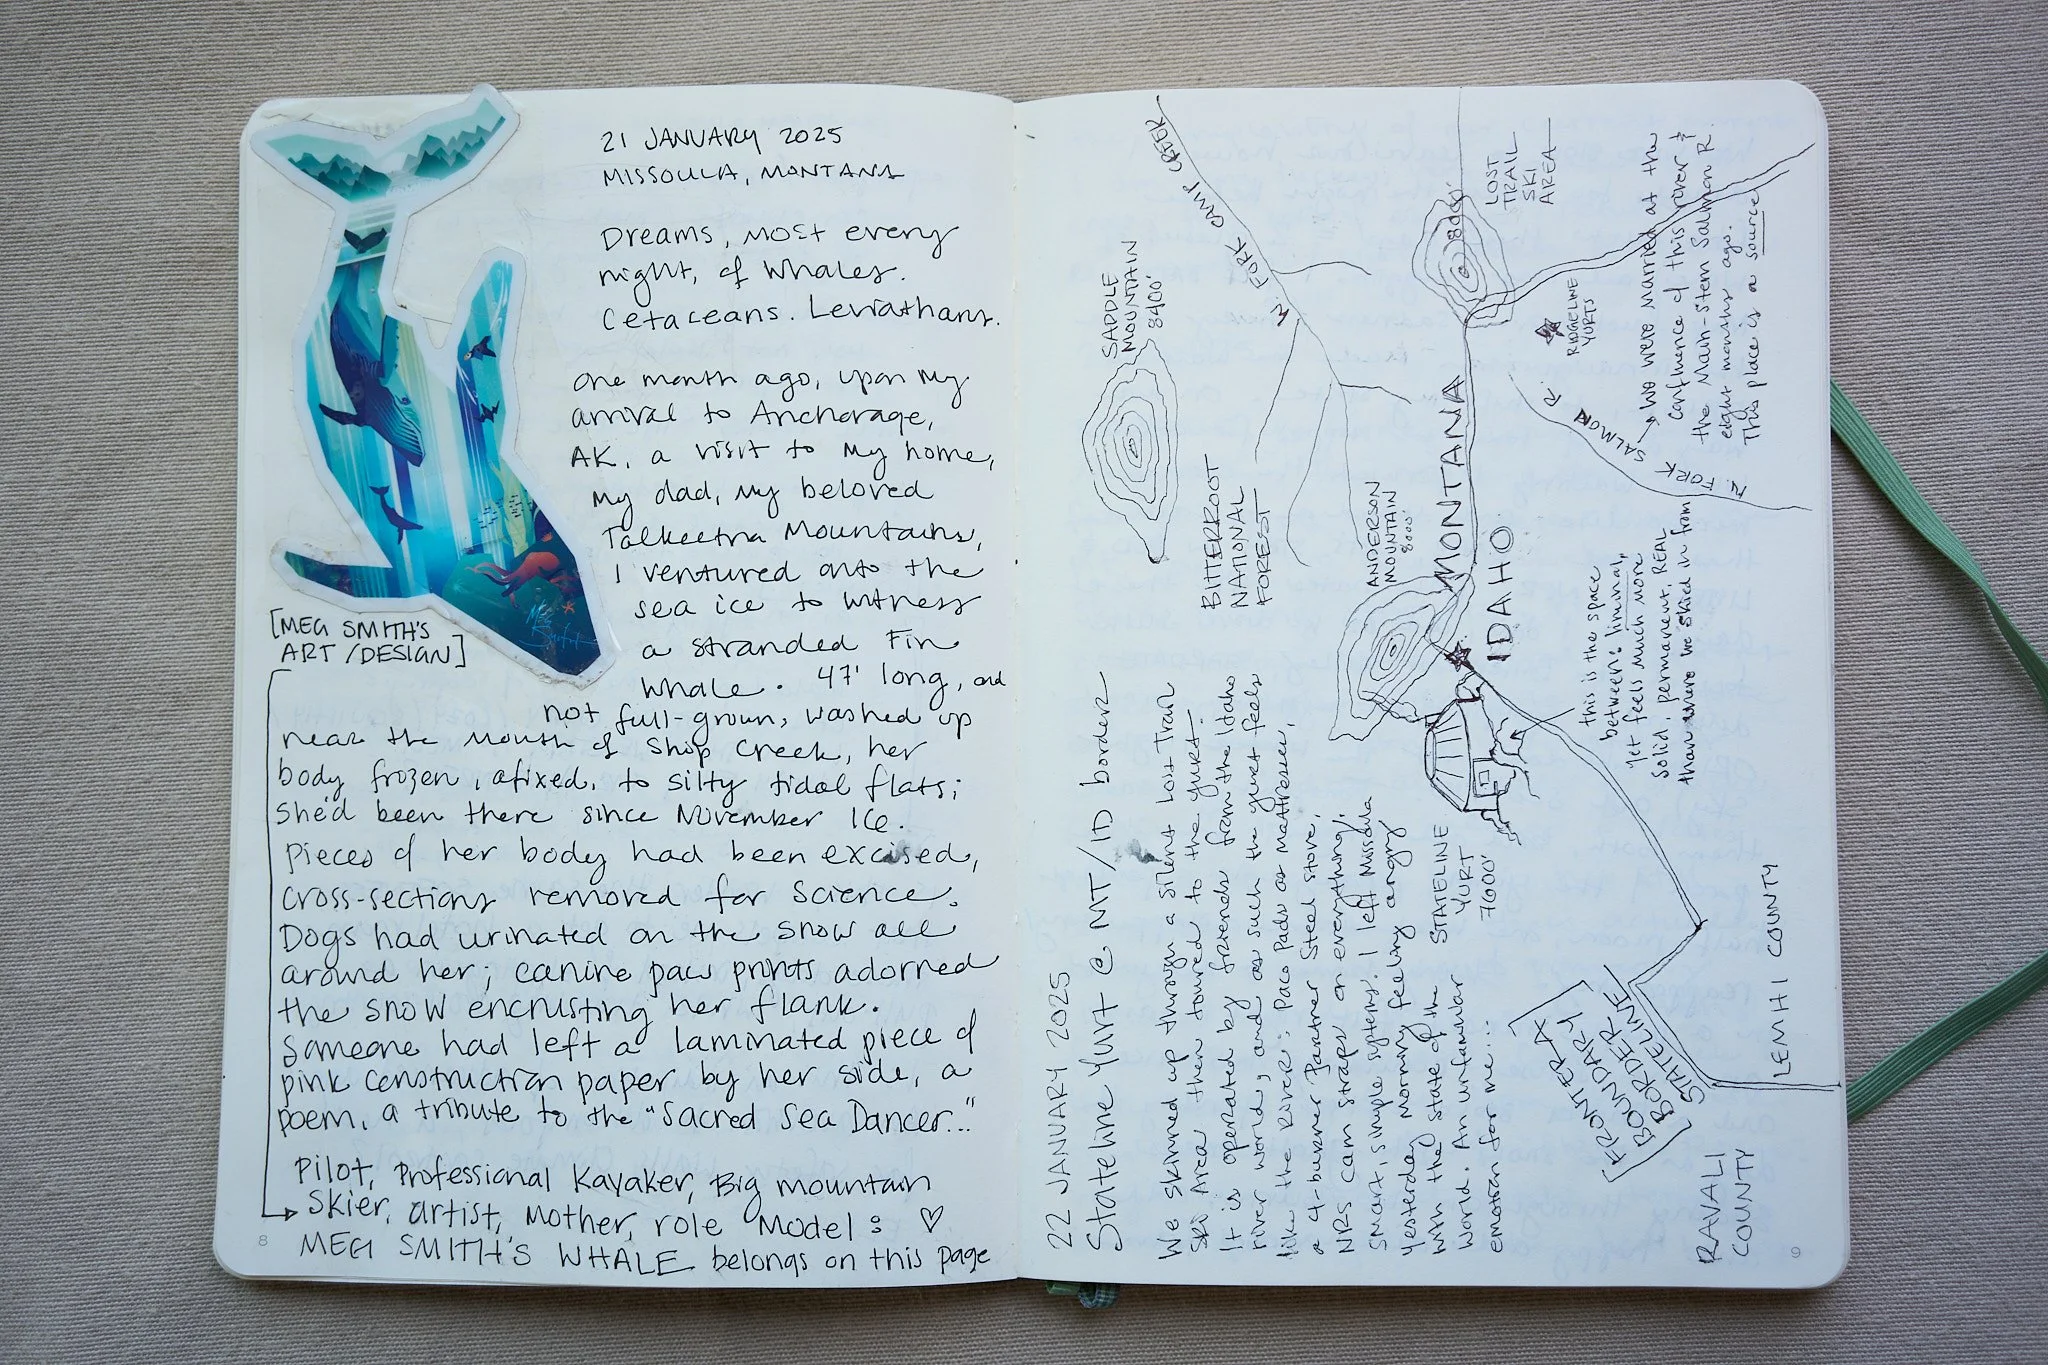 21 JANUARY 2025
MISSOULA, MONTANA
Dreams, most every
night, of whales.
Cetaceans. Leviathans.
one month ago, upon my
arrival to Anchorage,
AK, a visit to my home,
my dad, my beloved
Talkeetna Mountains,
I ventured onto the
sea ice to witness
a stranded Fin
whale. 47' long, and
not full-grown, washed up
near the mouth of Ship Creek, her
body frozen, afixed, to silty tidal flats;
she'd been there since November ice.
pieces of her body had been excised,
cross-sections removed for science.
Dogs had urinated on the snow all
around her; canine paw prints adorned
the snow encrusting her flank.
Someone had left a laminated piece of
pink construction paper by her side, a
poem, a tribute to the "Sacred Sea Dancer..."
[MEG SMITH'S
ART/DESIGN]
Pilot, Professional Kayaker, Big mountain
Skier, artist, Mother, role model: ♡
MEG SMITH'S WHALE belongs on this page
8
22 JANUARY 2025
Stateline Yurt @ MT/ID border
We skinned up through a silent Lost Trail
Ski Area then toured to the yurt.
It is operated by friends from the Idaho
river world, and as such the yurt feels
like the river: Paco Pads as mattresses,
a 4-burner Partner Steel stove,
NRS cam straps on everything;
smart, simple systems. I left Missoula
yesterday morning feeling angry
with the state of the
world. An unfamiliar
emotion for me...
SADDLE
MOUNTAIN
8400'
N FORK CAMP CREEK
BITTERROOT
NATIONAL
FOREST
ANDERSON
MOUNTAIN
8000'
MONTANA
IDAHO
8000'
LOST
TRAIL
SKI
AREA
RIDGELINE
YURTS
N. FORK SALMON R.
→ we were married at the
confluence of this river &
the Main-Stem Salmon R.
eight months ago.
This place is a source
this is the space
between: liminal,
yet feels much more
solid, permanent, REAL
than where we skied in from
STATELINE
YURT
7600'
[FRONTERA
BOUNDARY
BORDER
STATELINE]
LEMHI COUNTY
RAVALI
COUNTY
9